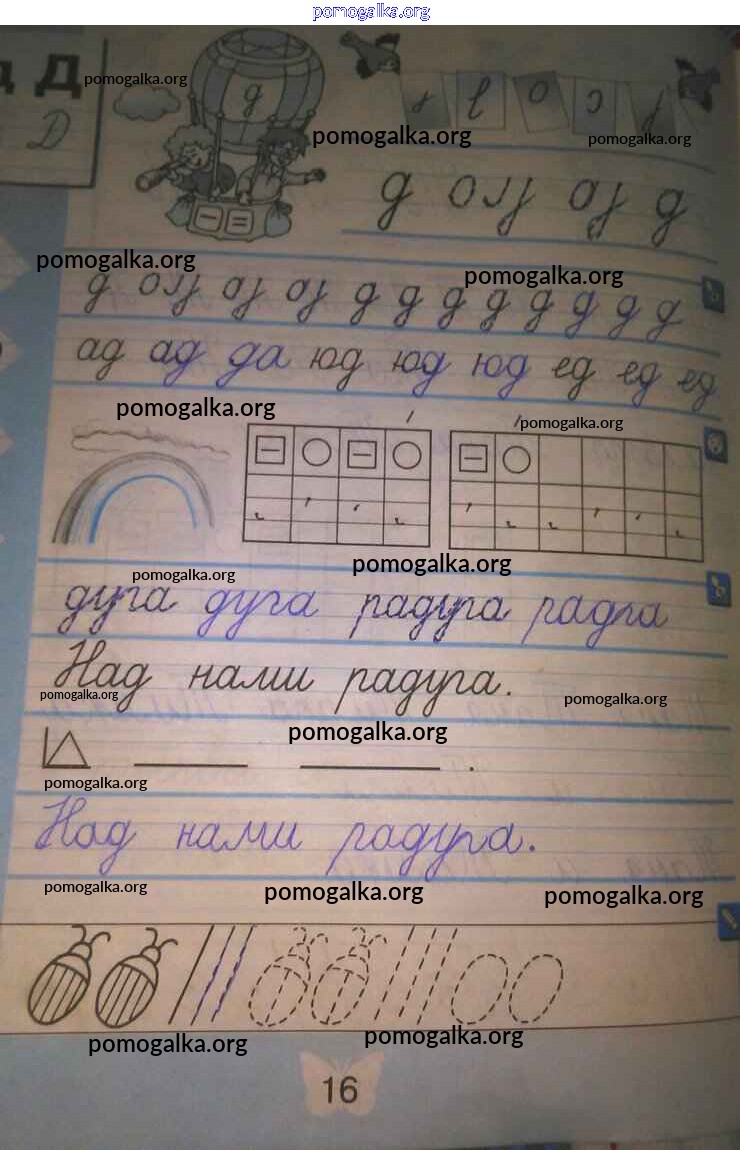 pomogalka.org
Д
pomogalka.org
Д
д
pomogalka.org
pomogalka.org
д
pomogalka.org
pomogalka.org
д д д д д д д д
ад ад да юд юд юд ед ед ед
pomogalka.org
pomogalka.org
pomogalka.org
pomogalka.org
дуга дуга радуга радга
Над нами радуга.
pomogalka.org
pomogalka.org
pomogalka.org
pomogalka.org
Над нами радуга.
pomogalka.org
pomogalka.org
pomogalka.org
pomogalka.org
pomogalka.org
16